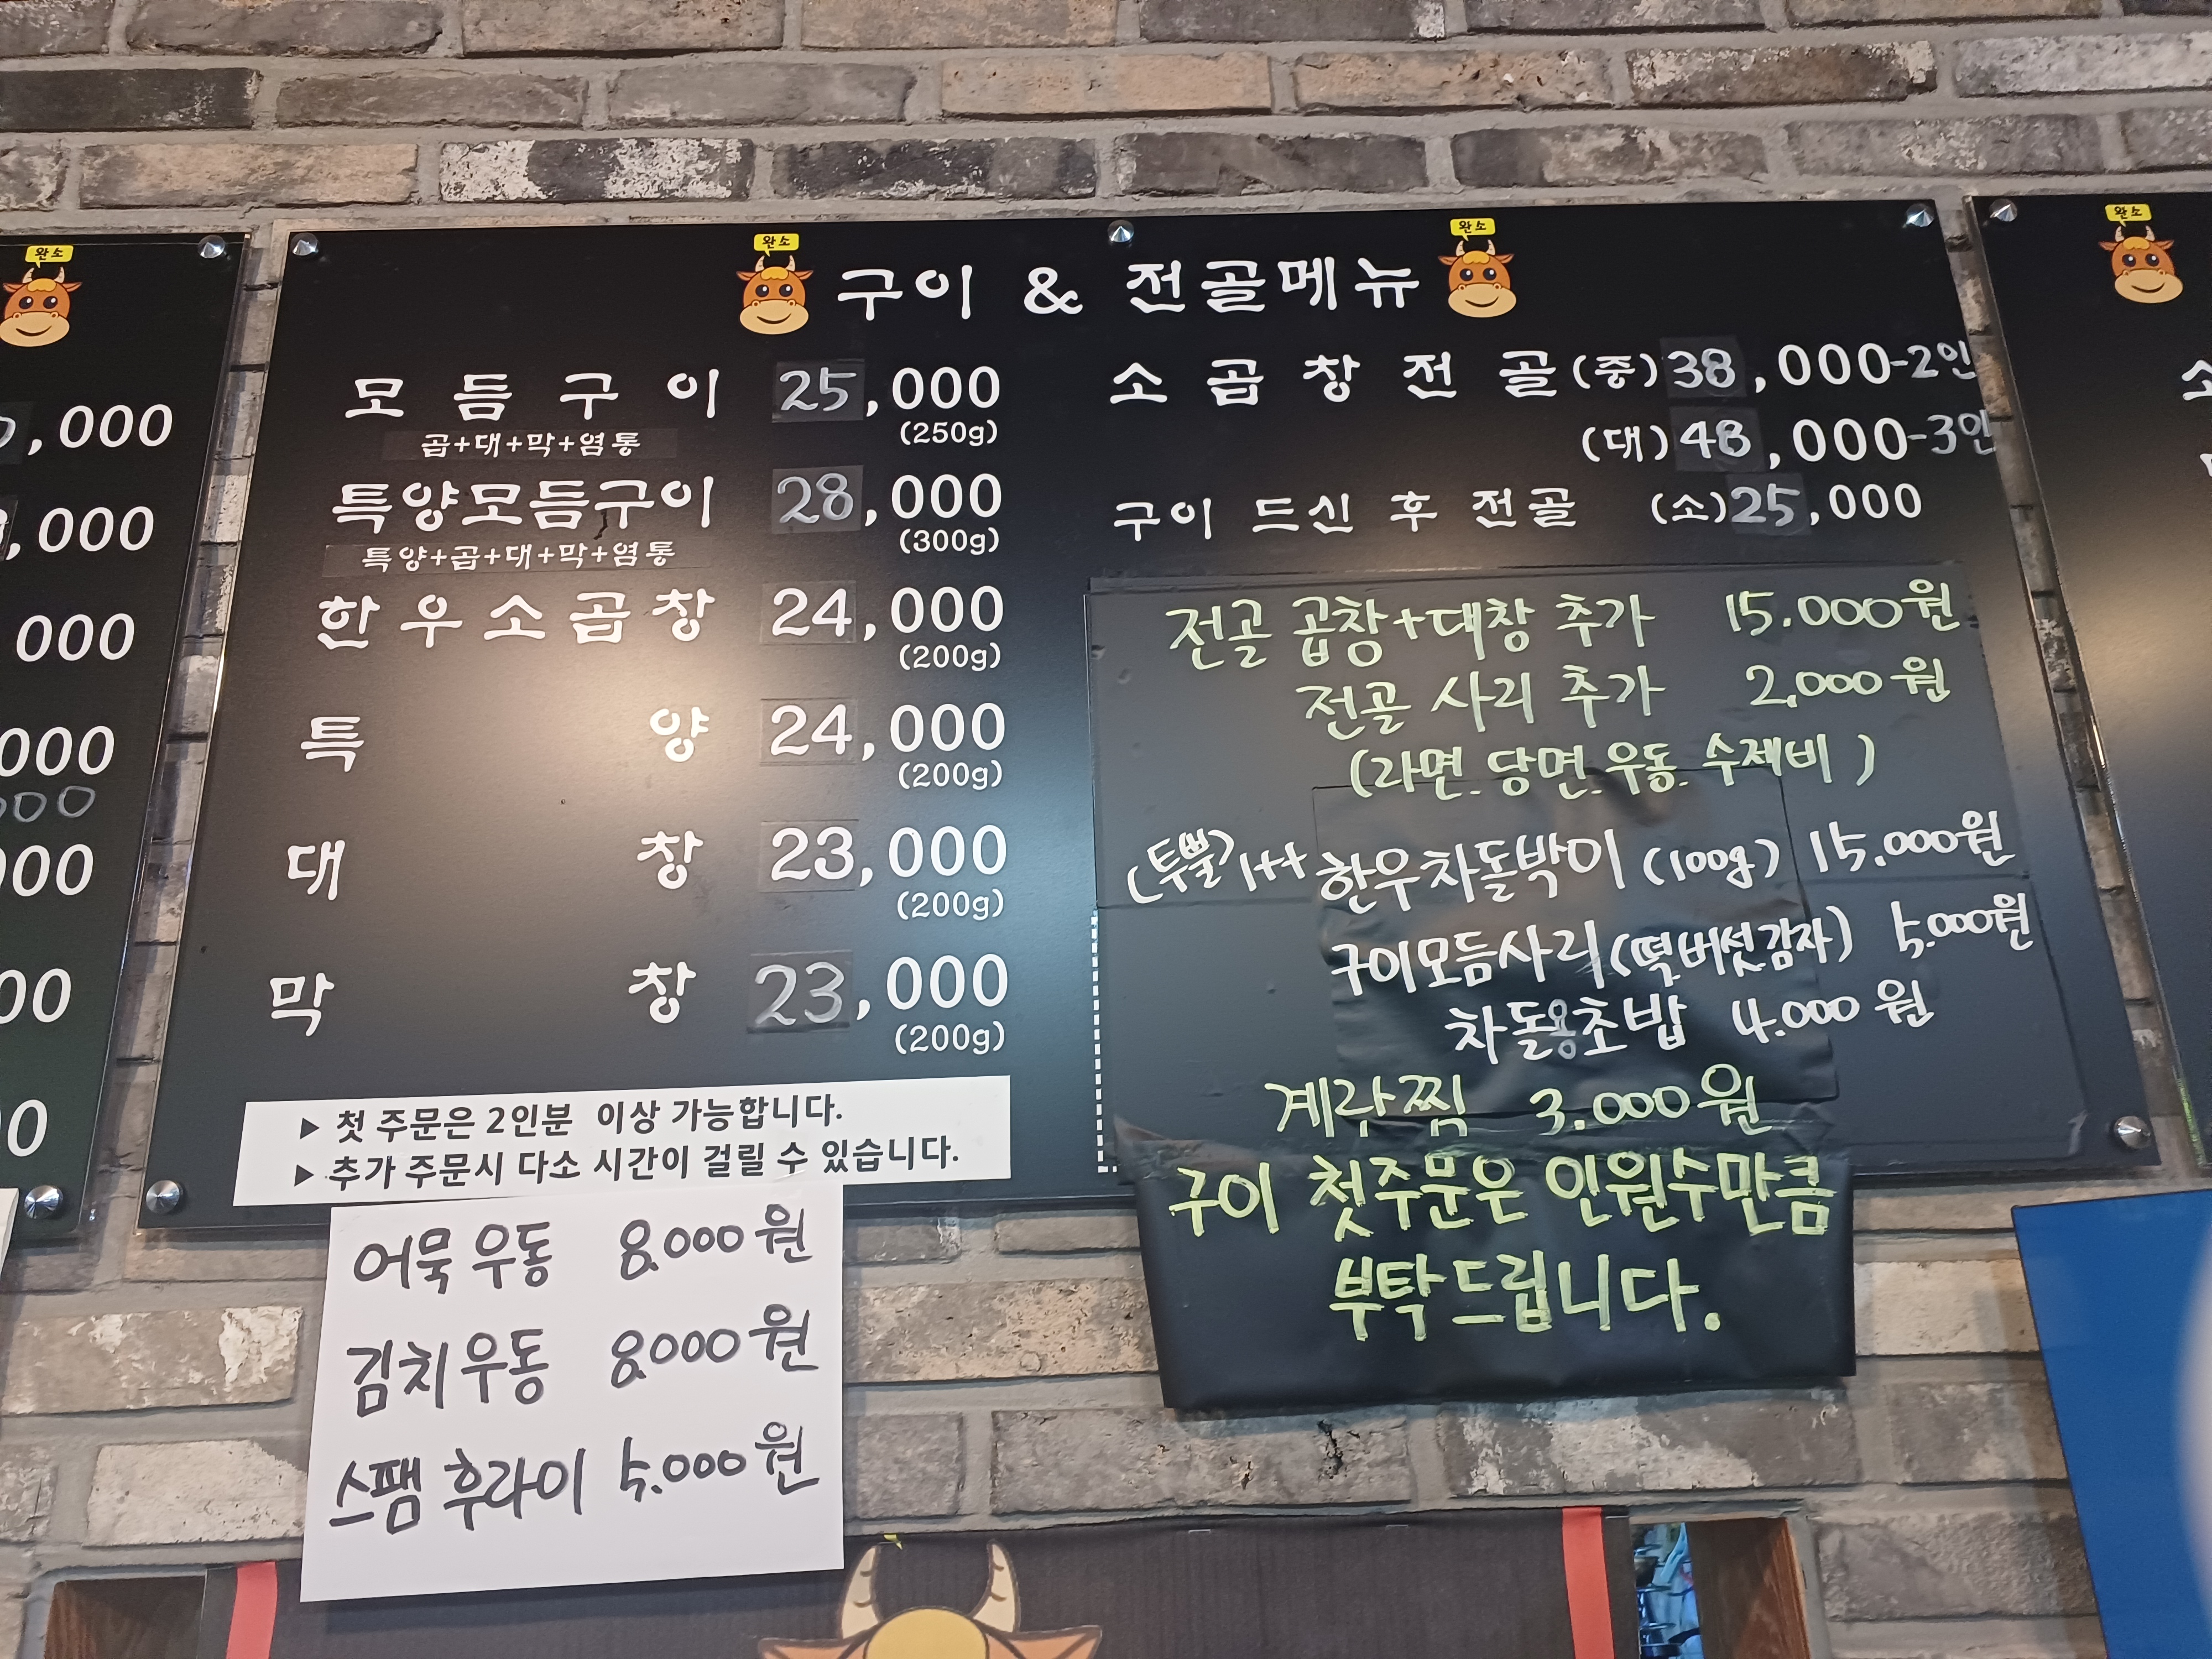 완소
완소
완소
완소
구이 & 전골메뉴
모듬구이 25,000
(250g)
곱+대+막+염통
특양모듬구이 28,000
(300g)
특양+곱+대+막+염통
한우소곱창 24,000
(200g)
특양 24,000
(200g)
대창 23,000
(200g)
막창 23,000
(200g)
▶ 첫 주문은 2인분 이상 가능합니다.
▶ 추가 주문시 다소 시간이 걸릴 수 있습니다.
어묵우동 8.000원
김치우동 8.000원
스팸 후라이 5.000원
소곱창전골(중)38,000-2인
(대)48,000-3인
구이 드신 후 전골 (소)25,000
전골 곱창+대창 추가 15.000원
전골 사리 추가 2,000원
(라면. 당면. 우동. 수제비)
(투뿔)1++한우차돌박이(100g) 15.000원
구이모듬사리(떡버섯감자) 5.000원
차돌용초밥 4.000원
계란찜 3.000원
구이 첫주문은 인원수만큼
부탁드립니다.
,000
,000
000
000
000
000
00
0